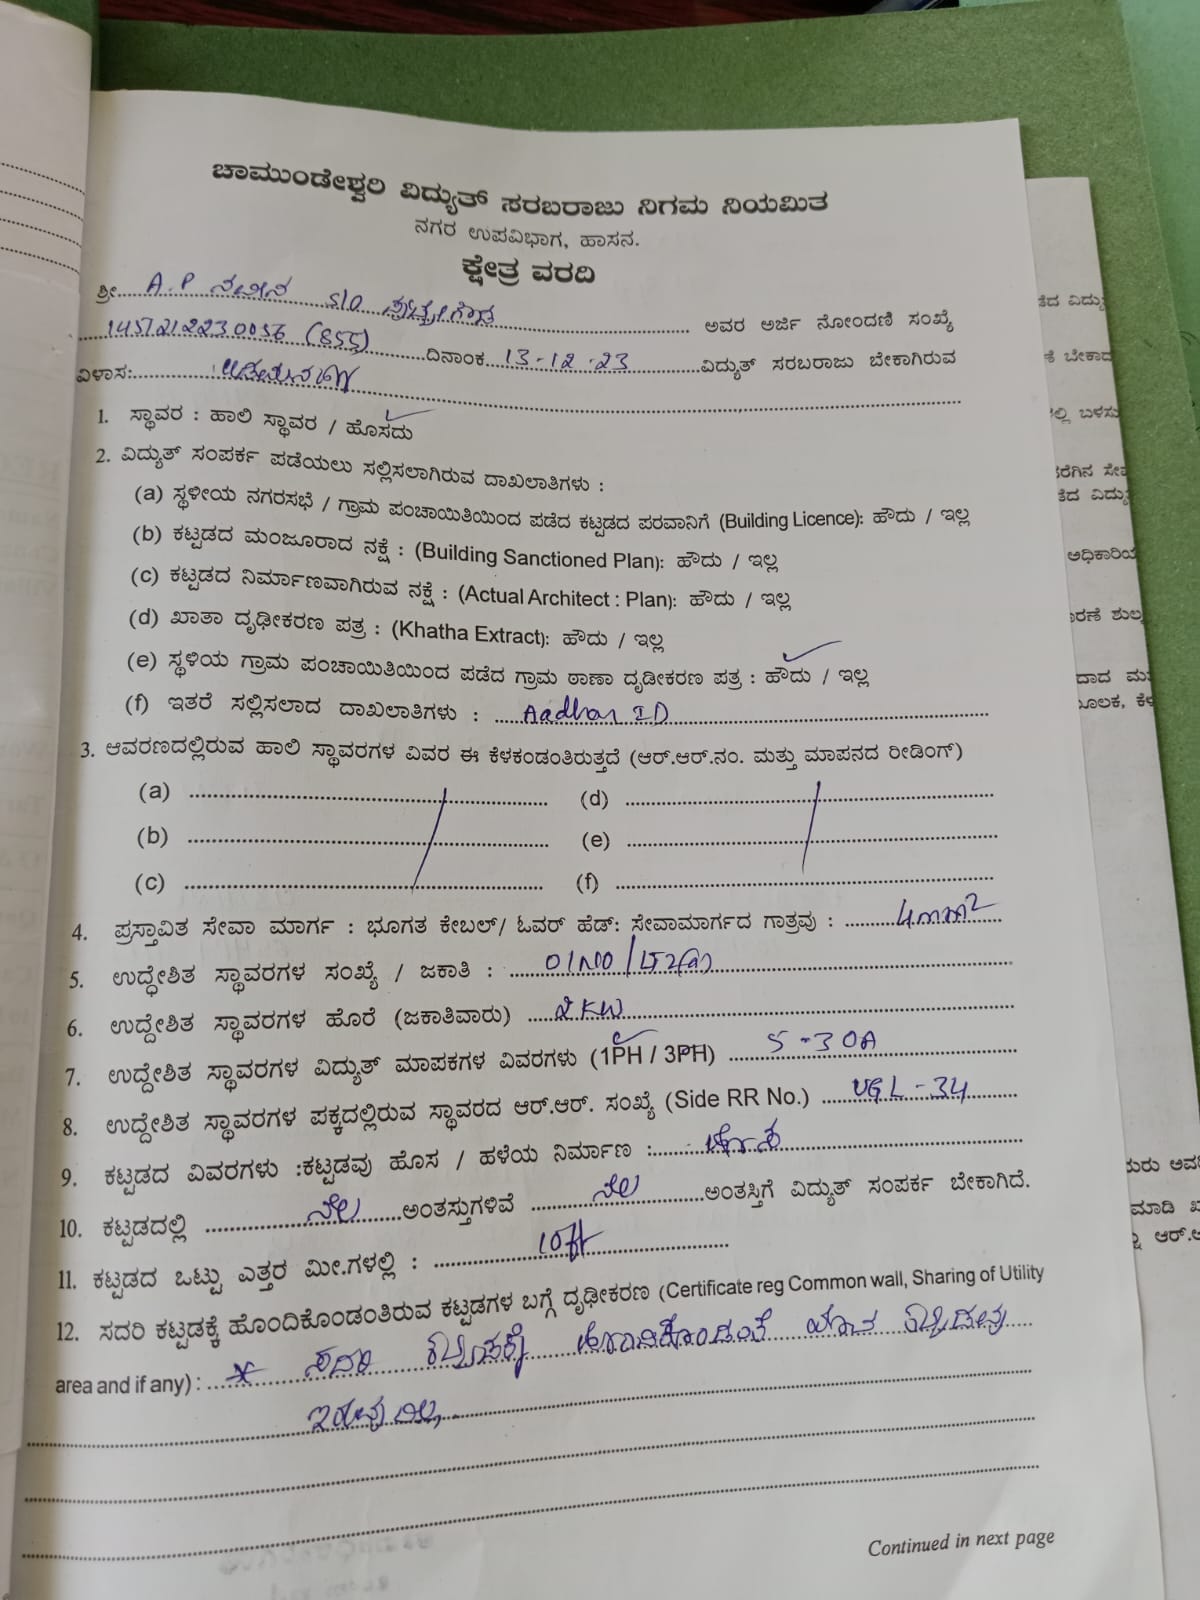 ಚಾಮುಂಡೇಶ್ವರಿ ವಿದ್ಯುತ್ ಸರಬರಾಜು ನಿಗಮ ನಿಯಮಿತ
ನಗರ ಉಪವಿಭಾಗ, ಹಾಸನ.
ಕ್ಷೇತ್ರ ವರದಿ
ಶ್ರೀ A.P ನವೀನ S/O ಪುಟ್ಟೇಗೌಡ ಅವರ ಅರ್ಜಿ ನೋಂದಣಿ ಸಂಖ್ಯೆ
ದಿನಾಂಕ 13-12-23 ವಿದ್ಯುತ್ ಸರಬರಾಜು ಬೇಕಾಗಿರುವ
ವಿಳಾಸ:
1. ಸ್ಥಾವರ : ಹಾಲಿ ಸ್ಥಾವರ / ಹೊಸದು
2. ವಿದ್ಯುತ್ ಸಂಪರ್ಕ ಪಡೆಯಲು ಸಲ್ಲಿಸಲಾಗಿರುವ ದಾಖಲಾತಿಗಳು :
(a) ಸ್ಥಳೀಯ ನಗರಸಭೆ / ಗ್ರಾಮ ಪಂಚಾಯಿತಿಯಿಂದ ಪಡೆದ ಕಟ್ಟಡದ ಪರವಾನಿಗೆ (Building Licence): ಹೌದು / ಇಲ್ಲ
(b) ಕಟ್ಟಡದ ಮಂಜೂರಾದ ನಕ್ಷೆ : (Building Sanctioned Plan): ಹೌದು / ಇಲ್ಲ
(c) ಕಟ್ಟಡದ ನಿರ್ಮಾಣವಾಗಿರುವ ನಕ್ಷೆ : (Actual Architect : Plan): ಹೌದು / ಇಲ್ಲ
(d) ಖಾತಾ ದೃಢೀಕರಣ ಪತ್ರ : (Khatha Extract): ಹೌದು / ಇಲ್ಲ
(e) ಸ್ಥಳಿಯ ಗ್ರಾಮ ಪಂಚಾಯಿತಿಯಿಂದ ಪಡೆದ ಗ್ರಾಮ ಠಾಣಾ ದೃಡೀಕರಣ ಪತ್ರ : ಹೌದು / ಇಲ್ಲ
(f) ಇತರೆ ಸಲ್ಲಿಸಲಾದ ದಾಖಲಾತಿಗಳು : Aadhar ID
3. ಆವರಣದಲ್ಲಿರುವ ಹಾಲಿ ಸ್ಥಾವರಗಳ ವಿವರ ಈ ಕೆಳಕಂಡಂತಿರುತ್ತದೆ (ಆರ್.ಆರ್.ನಂ. ಮತ್ತು ಮಾಪನದ ರೀಡಿಂಗ್)
(a) (d)
(b) (e)
(c) (f)
4. ಪ್ರಸ್ತಾವಿತ ಸೇವಾ ಮಾರ್ಗ : ಭೂಗತ ಕೇಬಲ್/ ಓವರ್ ಹೆಡ್: ಸೇವಾಮಾರ್ಗದ ಗಾತ್ರವು : 4mm²
5. ಉದ್ಧೇಶಿತ ಸ್ಥಾವರಗಳ ಸಂಖ್ಯೆ / ಜಕಾತಿ : 01NO/LT2(a)
6. ಉದ್ದೇಶಿತ ಸ್ಥಾವರಗಳ ಹೊರೆ (ಜಕಾತಿವಾರು) 2KW
7. ಉದ್ದೇಶಿತ ಸ್ಥಾವರಗಳ ವಿದ್ಯುತ್ ಮಾಪಕಗಳ ವಿವರಗಳು (1PH / 3PH) 5-30A
8. ಉದ್ದೇಶಿತ ಸ್ಥಾವರಗಳ ಪಕ್ಕದಲ್ಲಿರುವ ಸ್ಥಾವರದ ಆರ್.ಆರ್. ಸಂಖ್ಯೆ (Side RR No.) UGL-34
9. ಕಟ್ಟಡದ ವಿವರಗಳು :ಕಟ್ಟಡವು ಹೊಸ / ಹಳೆಯ ನಿರ್ಮಾಣ : ಹೊಸ
10. ಕಟ್ಟಡದಲ್ಲಿ ನೆಲ ಅಂತಸ್ತುಗಳಿವೆ ನೆಲ ಅಂತಸ್ತಿಗೆ ವಿದ್ಯುತ್ ಸಂಪರ್ಕ ಬೇಕಾಗಿದೆ.
11. ಕಟ್ಟಡದ ಒಟ್ಟು ಎತ್ತರ ಮೀ.ಗಳಲ್ಲಿ : 10ft
12. ಸದರಿ ಕಟ್ಟಡಕ್ಕೆ ಹೊಂದಿಕೊಂಡಂತಿರುವ ಕಟ್ಟಡಗಳ ಬಗ್ಗೆ ದೃಢೀಕರಣ (Certificate reg Common wall, Sharing of Utility
area and if any) : * ಸದರಿ ಕಟ್ಟಡಕ್ಕೆ ಹೊಂದಿಕೊಂಡಂತೆ ಯಾವ ಕಟ್ಟಡವು
ಇರುವುದಿಲ್ಲ.
Continued in next page